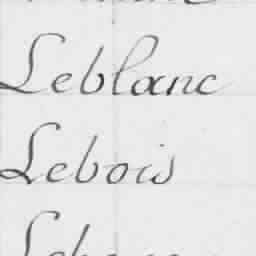 Leblanc
Lebois